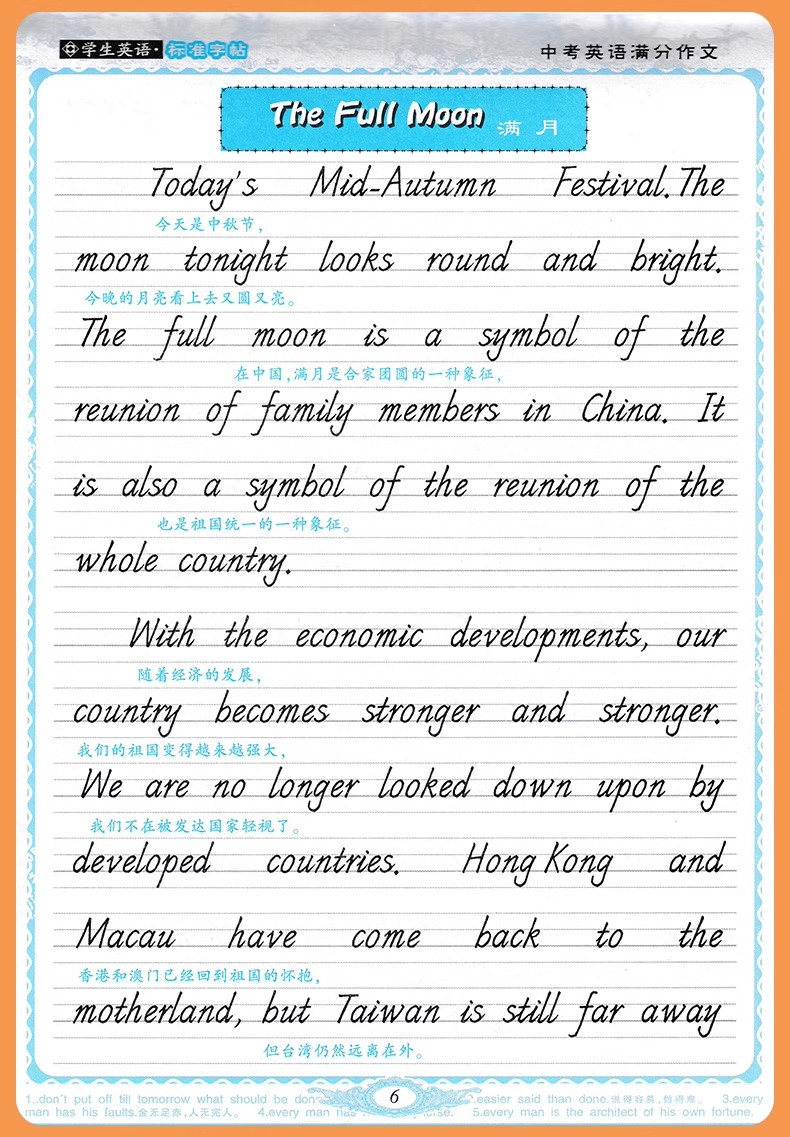 中学生英语·标准字帖
中考英语满分作文
The Full Moon 满 月
Today's Mid-Autumn Festival. The
今天是中秋节，
moon tonight looks round and bright.
今晚的月亮看上去又圆又亮。
The full moon is a symbol of the
在中国，满月是合家团圆的一种象征，
reunion of family members in China. It
is also a symbol of the reunion of the
也是祖国统一的一种象征。
whole country.
With the economic developments, our
随着经济的发展，
country becomes stronger and stronger.
我们的祖国变得越来越强大，
We are no longer looked down upon by
我们不在被发达国家轻视了。
developed countries. Hong Kong and
Macau have come back to the
香港和澳门已经回到祖国的怀抱，
motherland, but Taiwan is still far away
但台湾仍然远离在外。
6
1..don't put off till tomorrow what should be don .easier said than done.说得容易，做得难。 3.every
man has his faults.金无足赤，人无完人。 4.every man has 5.every man is the architect of his own fortune.